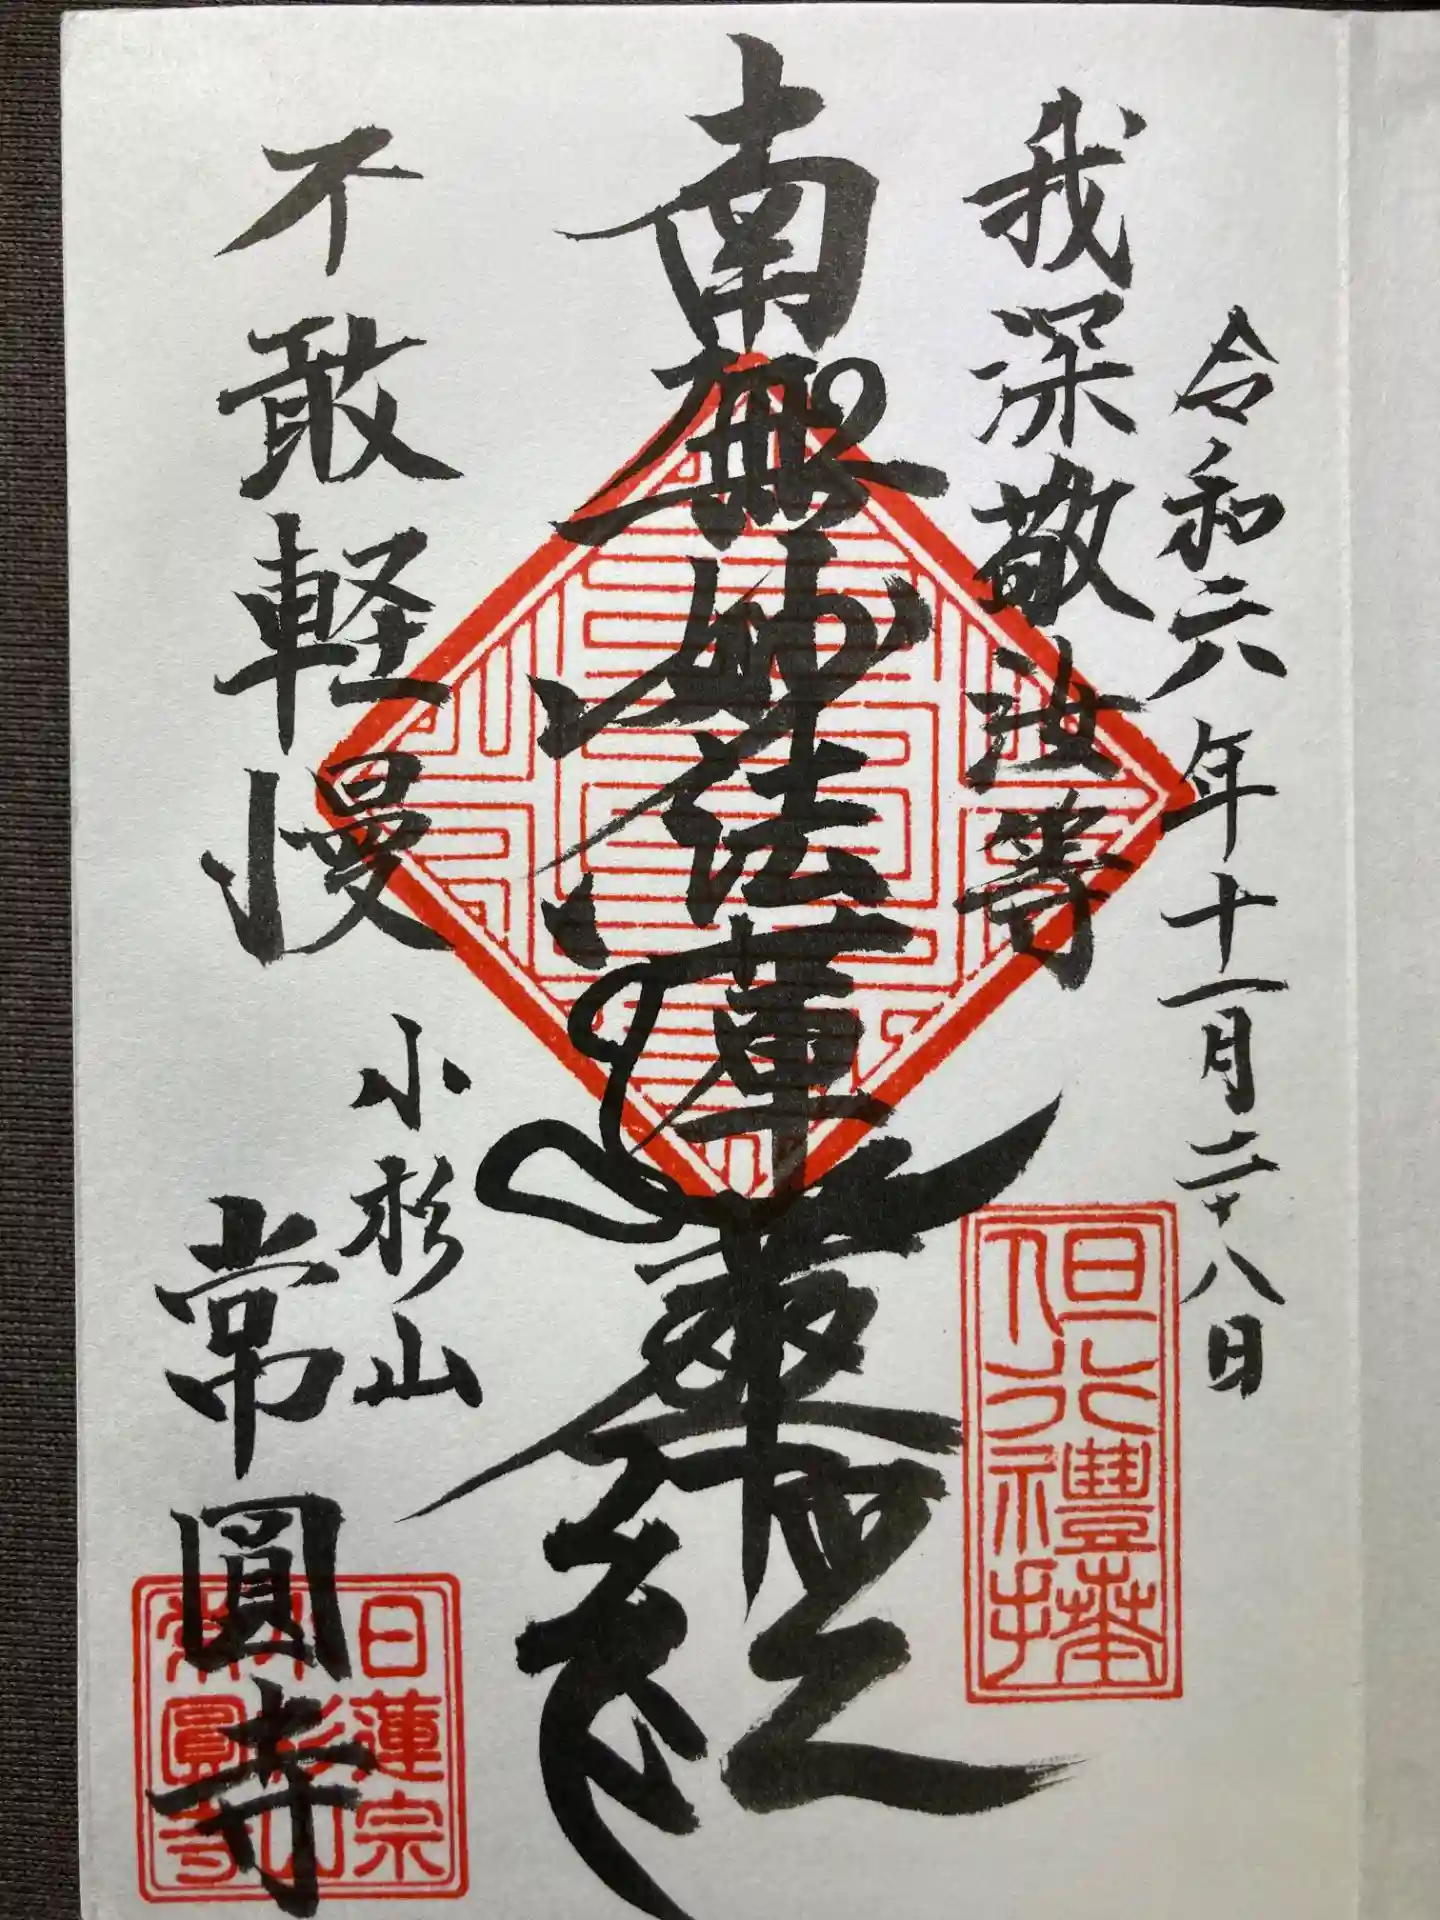 令和六年十一月二十八日
我深敬汝等
南無妙法蓮華経
不敢軽慢
小杉山
常圓寺
但行禮拝
日蓮宗
小杉山
常圓寺